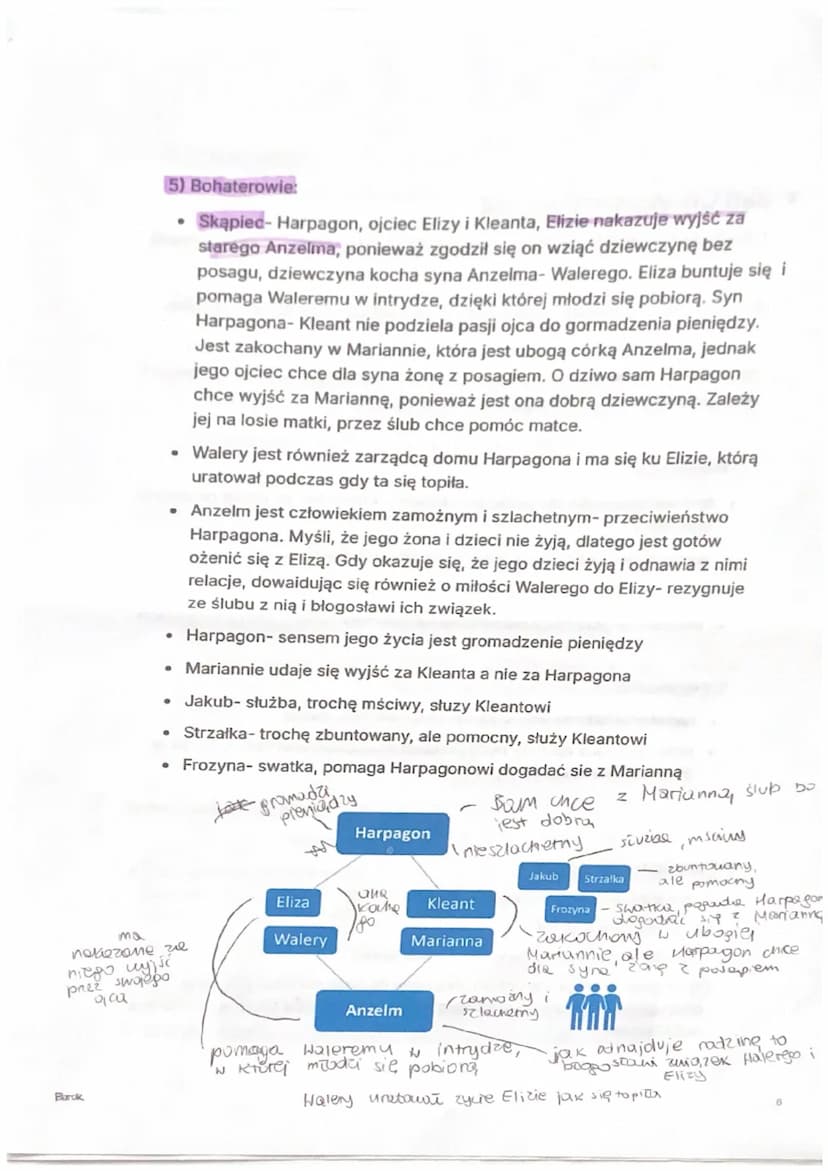 5) Bohaterowie:
• Skąpiec- Harpagon, ojciec Elizy i Kleanta, Elizie nakazuje wyjść za
starego Anzelma, ponieważ zgodził się on wziąć dziewczynę bez
posagu, dziewczyna kocha syna Anzelma- Walerego. Eliza buntuje się i
pomaga Waleremu w intrydze, dzięki której młodzi się pobiorą. Syn
Harpagona- Kleant nie podziela pasji ojca do gormadzenia pieniędzy.
Jest zakochany w Mariannie, która jest ubogą córką Anzelma, jednak
jego ojciec chce dla syna żonę z posagiem. O dziwo sam Harpagon
chce wyjść za Mariannę, ponieważ jest ona dobrą dziewczyną. Zależy
jej na losie matki, przez ślub chce pomóc matce.
• Walery jest również zarządcą domu Harpagona i ma się ku Elizie, którą
uratował podczas gdy ta się topiła.
• Anzelm jest człowiekiem zamożnym i szlachetnym- przeciwieństwo
Harpagona. Myśli, że jego żona i dzieci nie żyją, dlatego jest gotów
ożenić się z Elizą. Gdy okazuje się, że jego dzieci żyją i odnawia z nimi
relacje, dowaidując się również o miłości Walerego do Elizy- rezygnuje
ze ślubu z nią i błogosławi ich związek.
• Harpagon- sensem jego życia jest gromadzenie pieniędzy
• Mariannie udaje się wyjść za Kleanta a nie za Harpagona
• Jakub- służba, trochę mściwy, słuzy Kleantowi
• Strzałka- trochę zbuntowany, ale pomocny, służy Kleantowi
• Frozyna- swatka, pomaga Harpagonowi dogadać sie z Marianną
gromadzi
pieniądzy
Harpagon
- Sam chce z Marianną ślub bo
jest dobrą
nieszlachetny
służba, mściwy
Jakub
Strzałka
- zbuntowany,
ale pomocny
Frozyna
- swatka, Harpagon
dogodać się z Marianną
Eliza
ona
kocha
go
Kleant
Walery
Marianna
zakochany w ubogiej
Mariannie, ale Harpagon chce
dla syna żonę z posagiem
ma
nakazane za
niego wyjść
przez swojego
ojca
Anzelm
zamożny i
szlachetny
pomaga Waleremu w intrydze,
w której młodzi się pobiorą
jak odnajduje rodzinę to
związek Walerego i
Elizy
Walery uratował życie Elizie jak się topiła
Barok
8